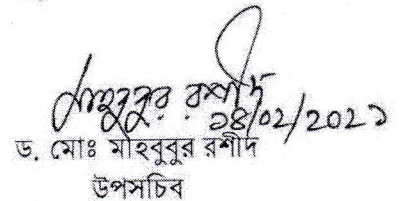 মাহবুবুর রশীদ
১৪/০২/২০২১
ড. মোঃ মাহবুবুর রশীদ
উপসচিব